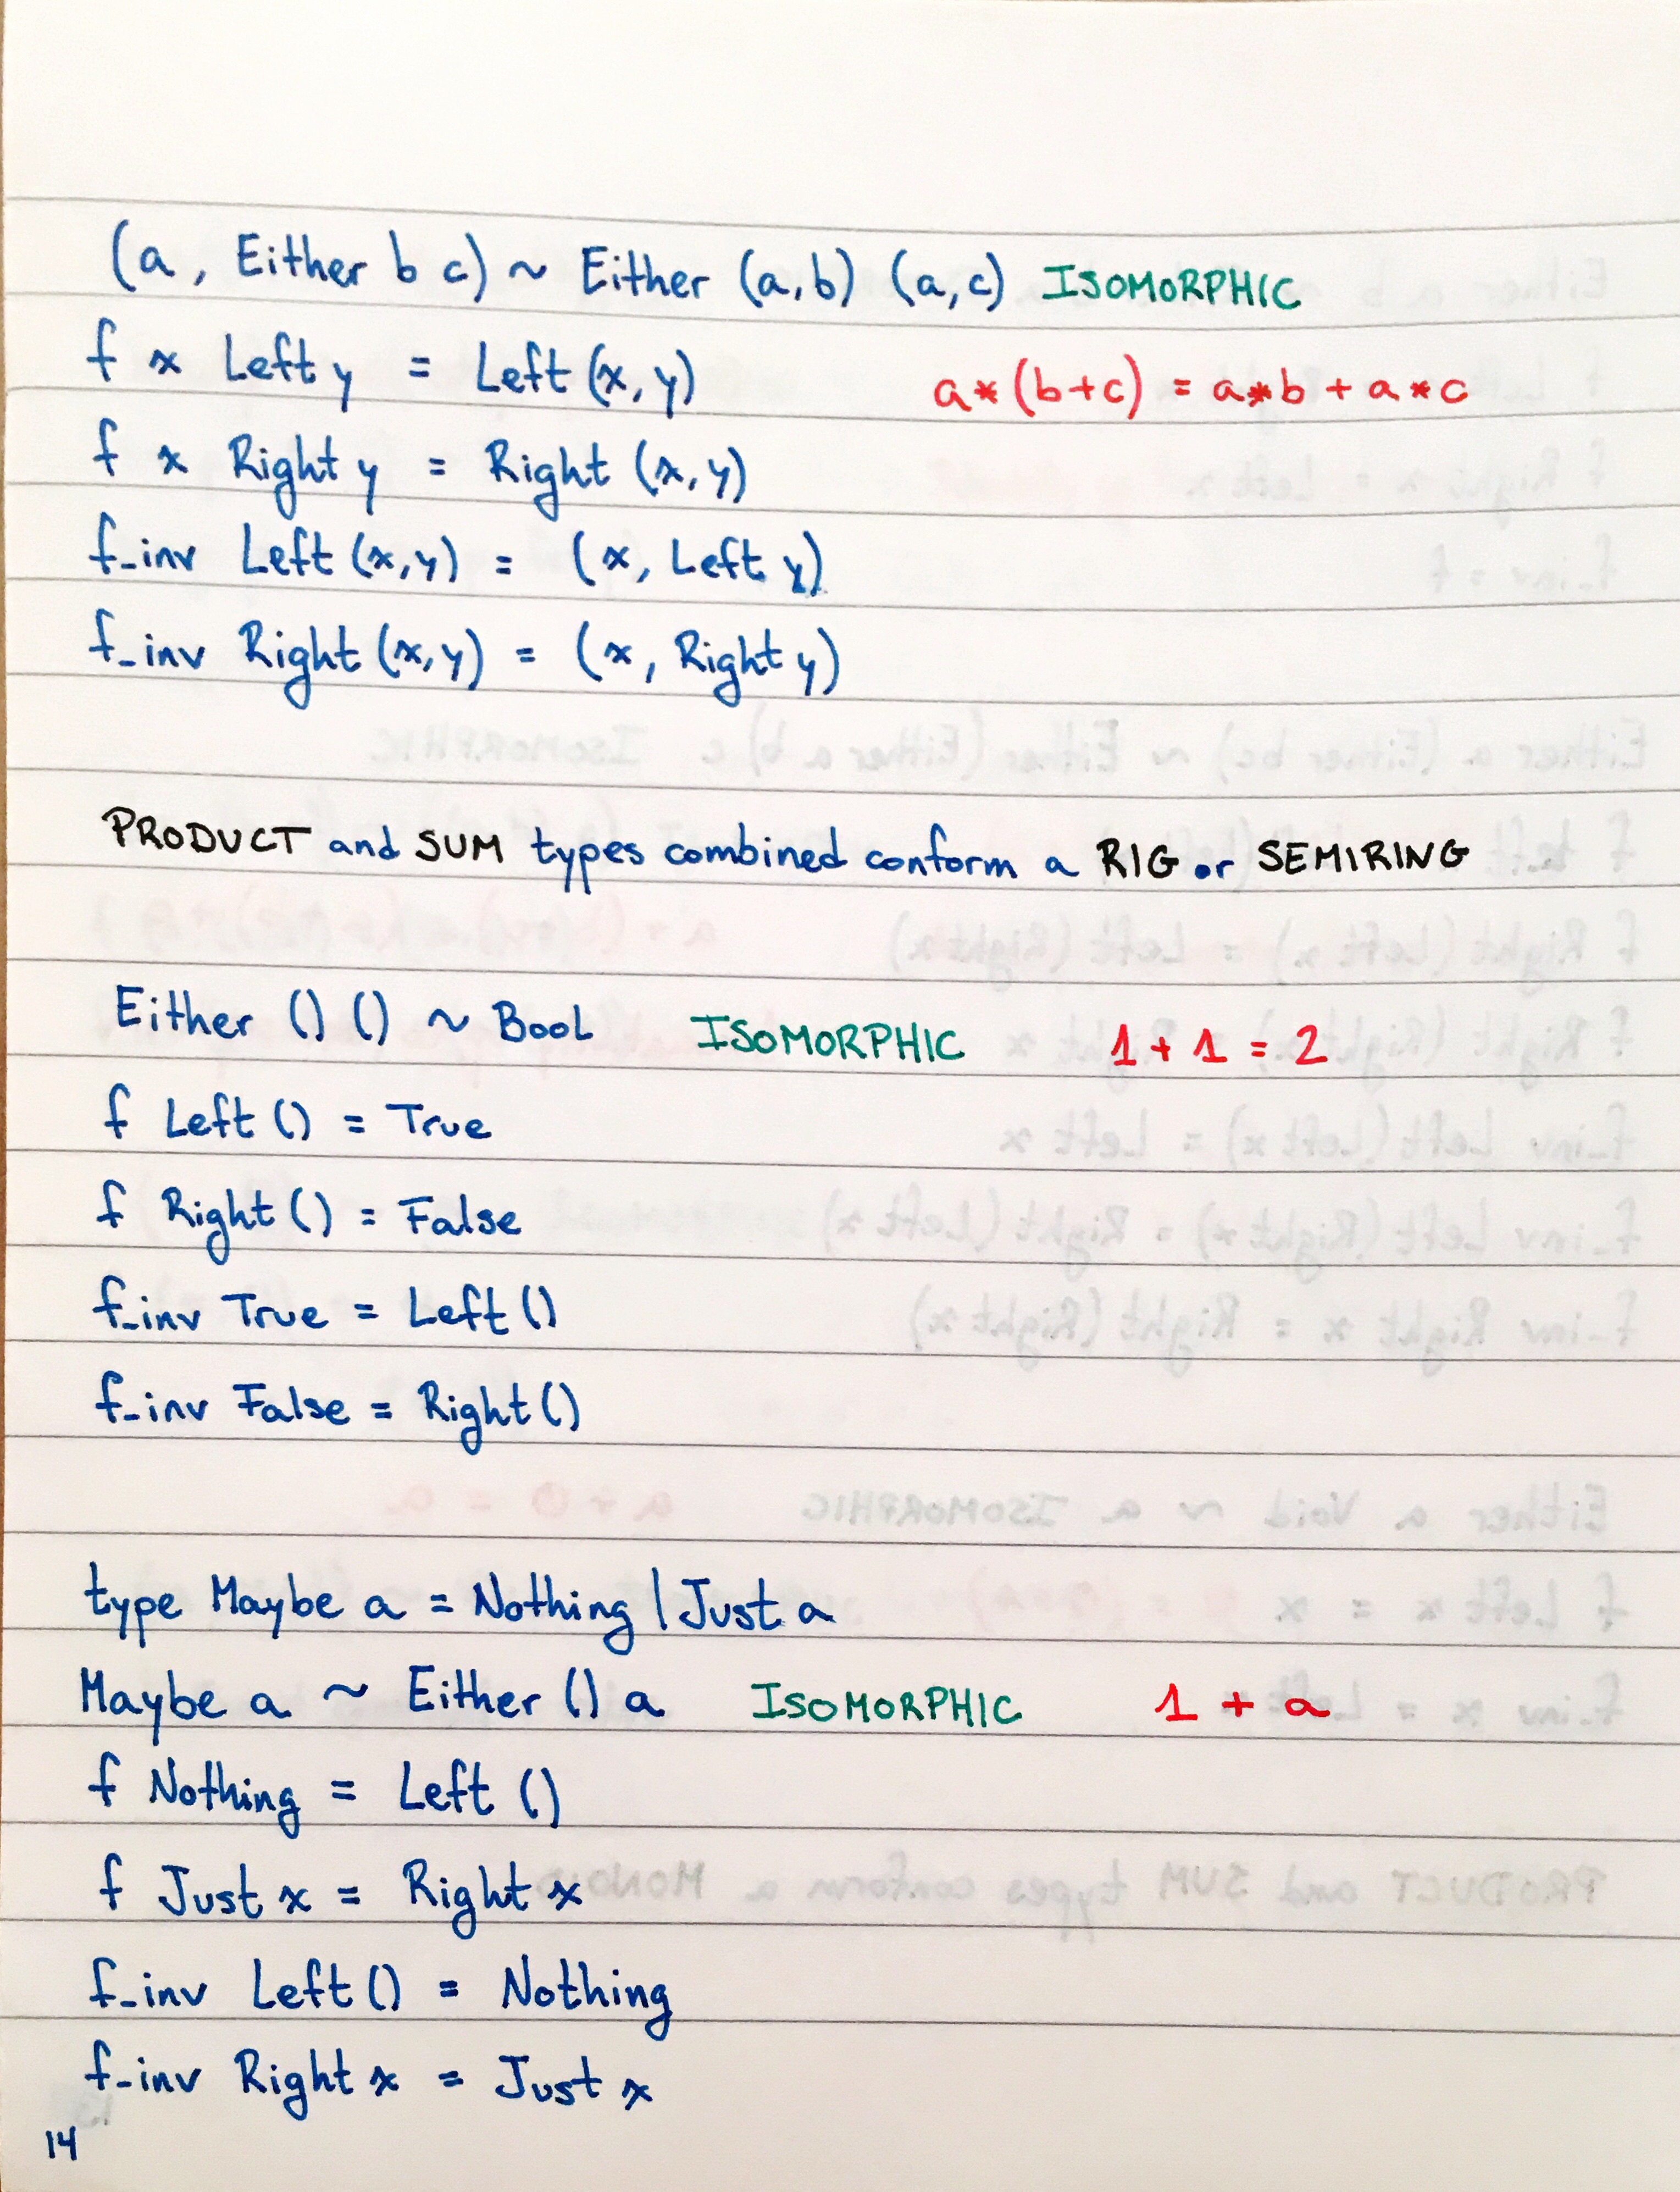 (a, Either b c) ~ Either (a,b) (a,c) ISOMORPHIC
f x Left y = Left (x, y) a*(b+c) = a*b + a*c
f x Right y = Right (x, y)
f_inv Left (x,y) = (x, Left y)
f_inv Right (x,y) = (x, Right y)
PRODUCT and SUM types combined conform a RIG or SEMIRING
Either () () ~ Bool ISOMORPHIC 1 + 1 = 2
f Left () = True
f Right () = False
f_inv True = Left ()
f_inv False = Right ()
type Maybe a = Nothing | Just a
Maybe a ~ Either () a ISOMORPHIC 1 + a
f Nothing = Left ()
f Just x = Right x
f_inv Left () = Nothing
f_inv Right x = Just x
14